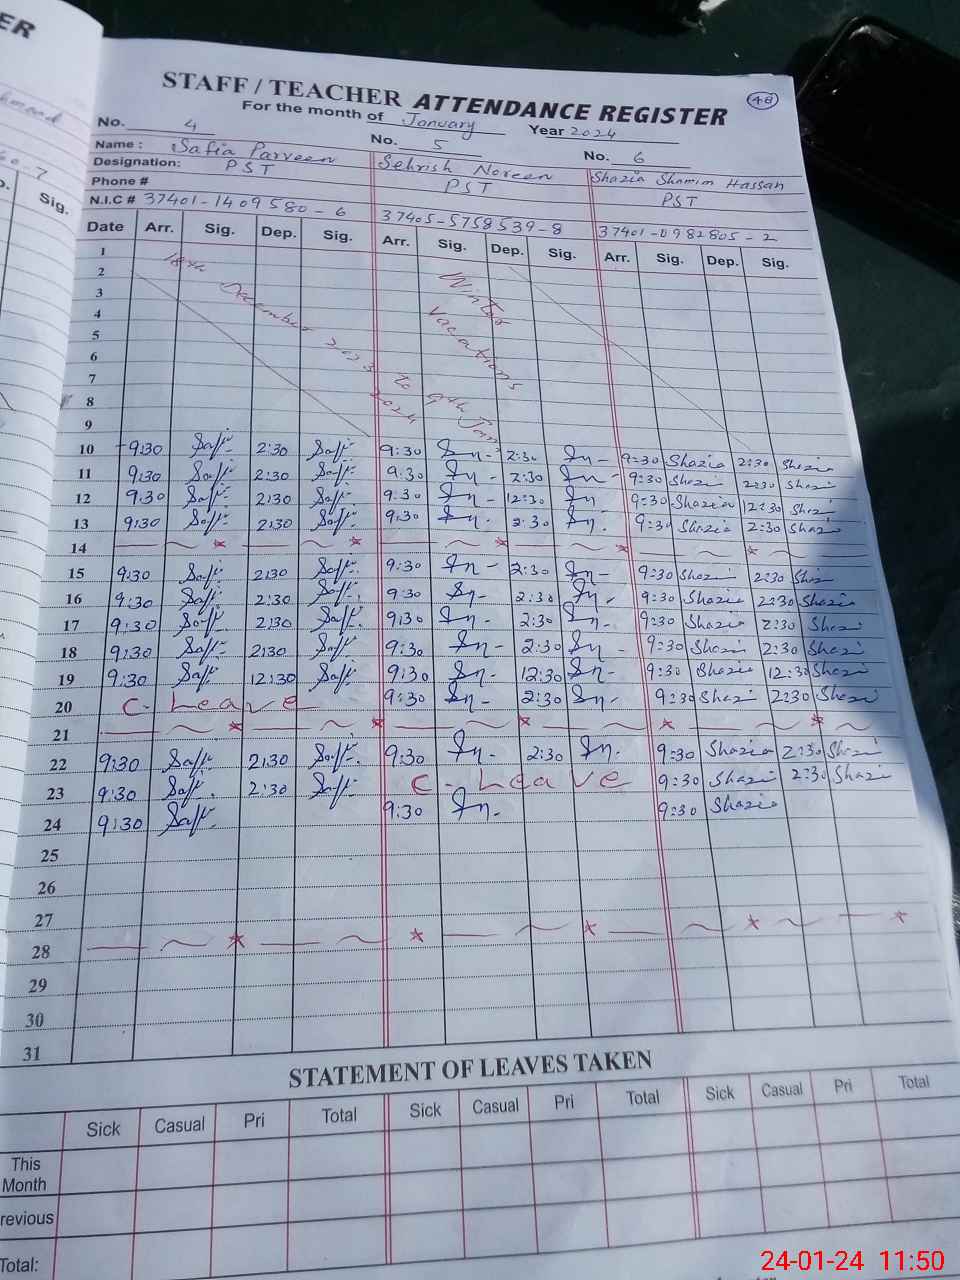 ER
STAFF / TEACHER ATTENDANCE REGISTER
48
For the month of January Year 2024
No. 4 No. 5 No. 6
Name : Safia Parveen Sehrish Noreen Shazia Shamim Hassan
Designation: PST PST PST
Phone #
N.I.C # 37401-1409580-6 37405-5758539-8 37401-0982805-2
Date Arr. Sig. Dep. Sig. Arr. Sig. Dep. Sig. Arr. Sig. Dep. Sig.
1
2
3
4
5
6
7
8
9
18th December 2023 To 9th Jan 2024
Winter Vacations
10 9:30 Saft 2:30 Saft 9:30 Sn 2:30 Sn 9:30 Shazia 2:30 Shazia
11 9:30 Saft 2:30 Saft 9:30 Sn 2:30 Sn 9:30 Shazi 2:30 Shazi
12 9:30 Saft 2:30 Saft 9:30 Sn 12:30 Sn 9:30 Shazia 12:30 Shazi
13 9:30 Saft 2:30 Saft 9:30 Sn 2:30 Sn 9:30 Shazi 2:30 Shazi
14
15 9:30 Saft 2:30 Saft 9:30 Sn 2:30 Sn 9:30 Shazi 2:30 Shazi
16 9:30 Saft 2:30 Saft 9:30 Sn 2:30 Sn 9:30 Shazi 2:30 Shazia
17 9:30 Saft 2:30 Saft 9:30 Sn 2:30 Sn 9:30 Shazia 2:30 Shazi
18 9:30 Saft 2:30 Saft 9:30 Sn 2:30 Sn 9:30 Shazia 2:30 Shazi
19 9:30 Saft 12:30 Saft 9:30 Sn 12:30 Sn 9:30 Shazia 12:30 Shazi
20 C- Leave 9:30 Sn 2:30 Sn 9:30 Shazi 2:30 Shazi
21
22 9:30 Saft 2:30 Saft 9:30 Sn 2:30 Sn 9:30 Shazia 2:30 Shazi
23 9:30 Saft 2:30 Saft C- Leave 9:30 Shazi 2:30 Shazi
24 9:30 Saft 9:30 Sn 9:30 Shazia
25
26
27
28
29
30
31
STATEMENT OF LEAVES TAKEN
Sick Casual Pri Total Sick Casual Pri Total Sick Casual Pri Total
This Month
revious
Total:
24-01-24 11:50